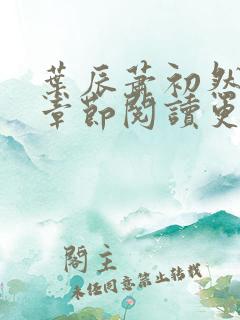 葉辰蕭初然
章節閱讀更
閣主
未经同意禁止转载